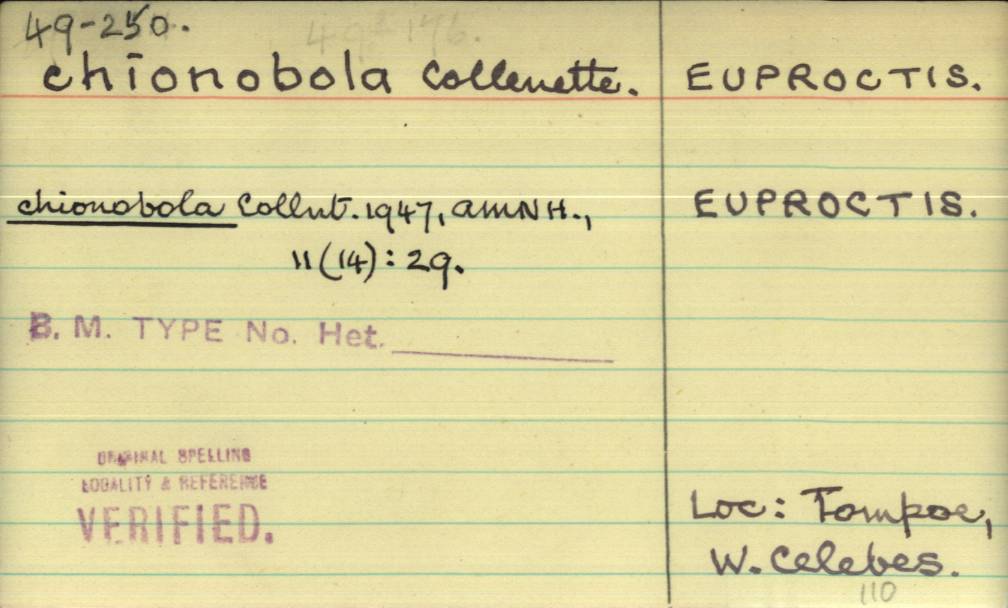 49-250.
49-176.
chionobola Collenette. EUPROCTIS.
chionobola Collnt. 1947, AMNH., EUPROCTIS.
11(14): 29.
B. M. TYPE No. Het.
ORIGINAL SPELLING
LOCALITY & REFERENCE
VERIFIED.
Loc: Tompoe,
W. Celebes.
110